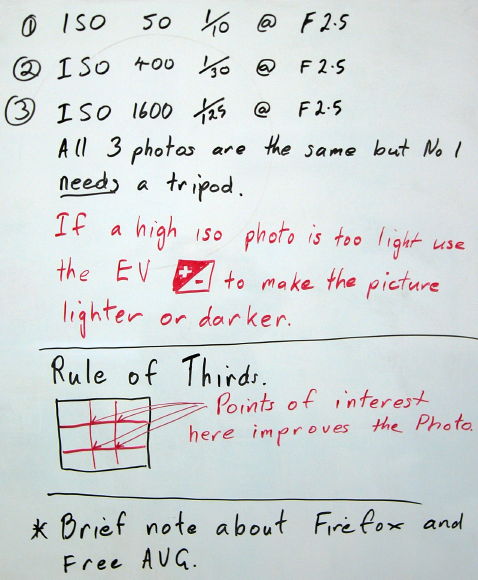 ① ISO 50 1/10 @ F2.5
② ISO 400 1/30 @ F2.5
③ ISO 1600 1/125 @ F2.5
All 3 photos are the same but No 1
needs a tripod.
If a high iso photo is too light use
the EV +- to make the picture
lighter or darker.
Rule of Thirds.
Points of interest
here improves the Photo.
* Brief note about Firefox and
Free AVG.